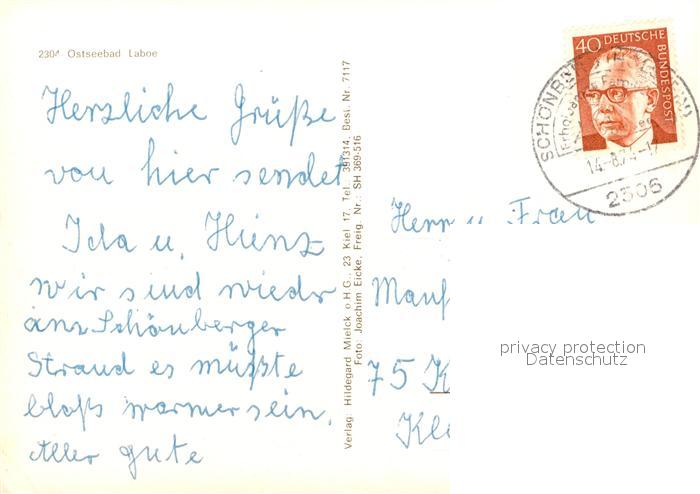 2304 Ostseebad Laboe
Herzliche Grüße
von hier sendet
Ida u. Heinz
wir sind wieder
am Schönberger
Strand es müßte
bloß warmer sein.
Aller gute
Verlag: Hildegard Mielck o.H.G., 23 Kiel 17, Tel. 391314, Besl. Nr. 7117
Foto: Joachim Eicke, Freig. Nr.: SH 369-516
40 DEUTSCHE BUNDESPOST
SCHÖNBERG
14.-8.74-17
2306
Herrn u. Frau
Manf
75 K
Kle
privacy protection
Datenschutz